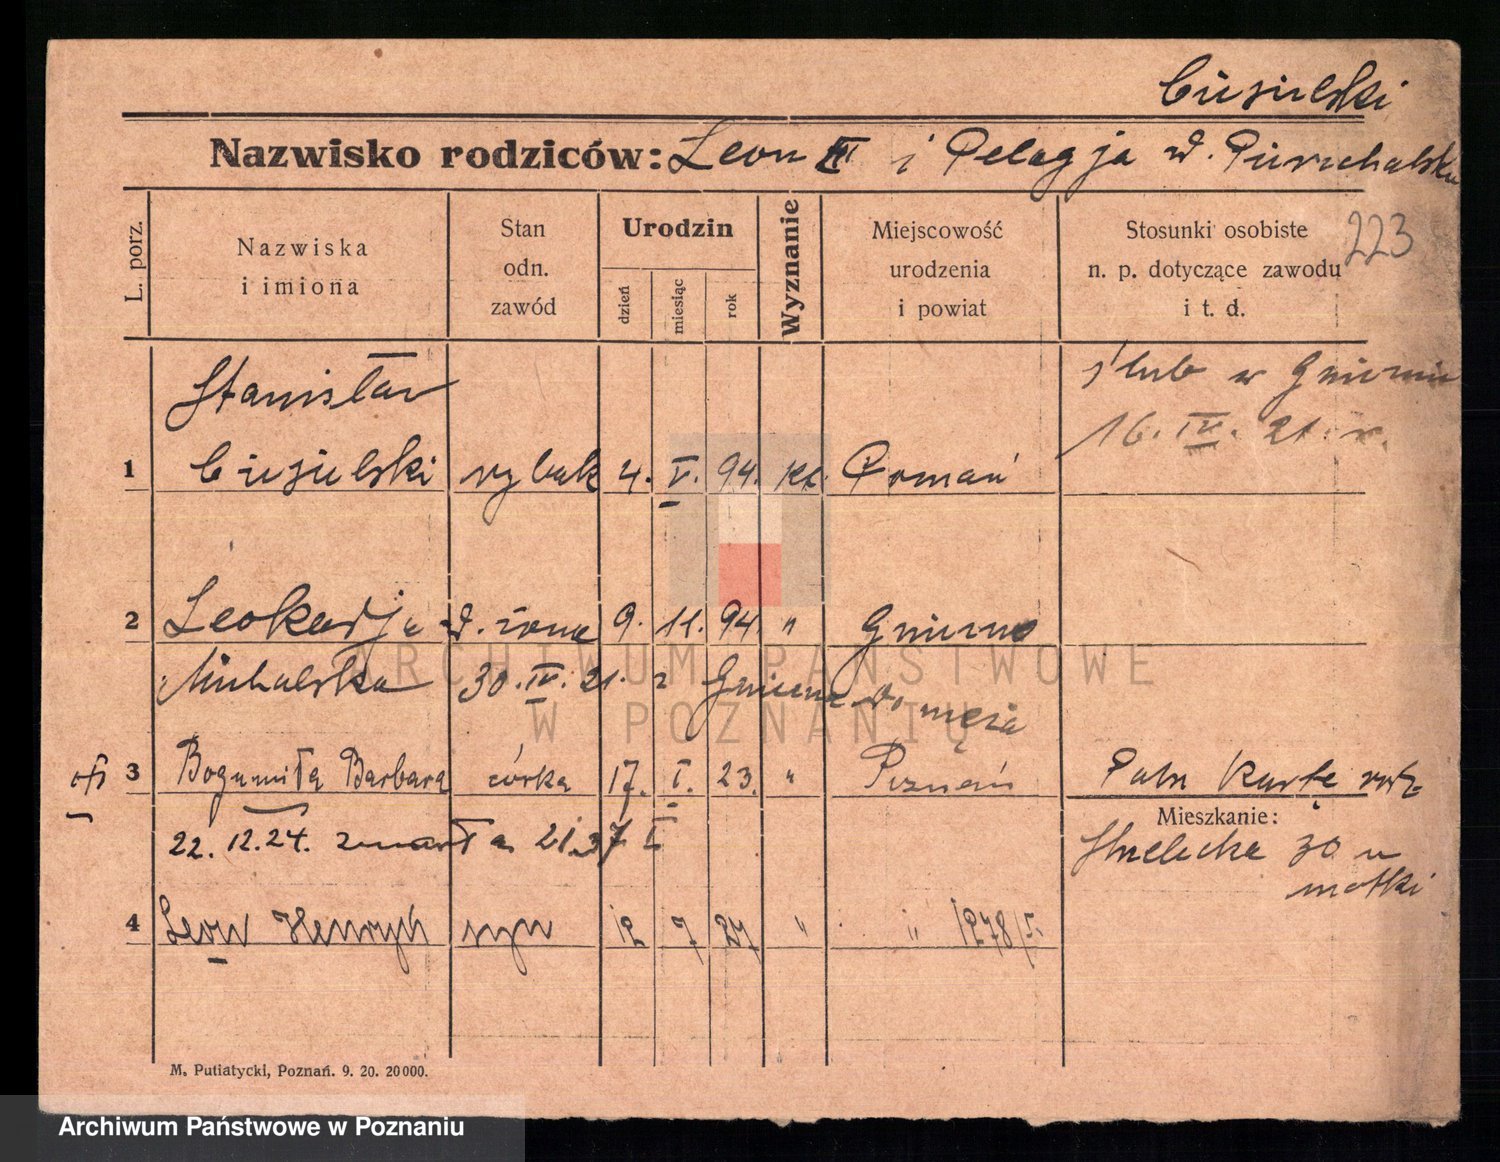 Ciesielski
Nazwisko rodziców: Leon III i Pelagja d. Piechalska
L. porz.
Nazwiska
i imiona
Stan
odn.
zawód
Urodzin
dzień
miesiąc
rok
Wyznanie
Miejscowość
urodzenia
i powiat
Stosunki osobiste
n. p. dotyczące zawodu
i t. d.
223
Stanisław
ślub w Gnieźnie
16. IV. 21. r.
1 Ciesielski rybak 4. V. 94. kt. Poznań
2 Leokadja d. żona 9. 11. 94. " Gniezno
Michalska 30. IV. 21. z Gniezna do męża
3 Bogumiła Barbara córka 17. I. 23. " Poznań
Patrz Kartę
22. 12. 24. zmarła 21.
Mieszkanie:
Strzelecka 30 u
matki
4 Leon Henryk syn 12 7 27 " " 1278/
M. Putiatycki, Poznań. 9. 20. 20000.
ARCHIWUM PAŃSTWOWE
W POZNANIU
Archiwum Państwowe w Poznaniu